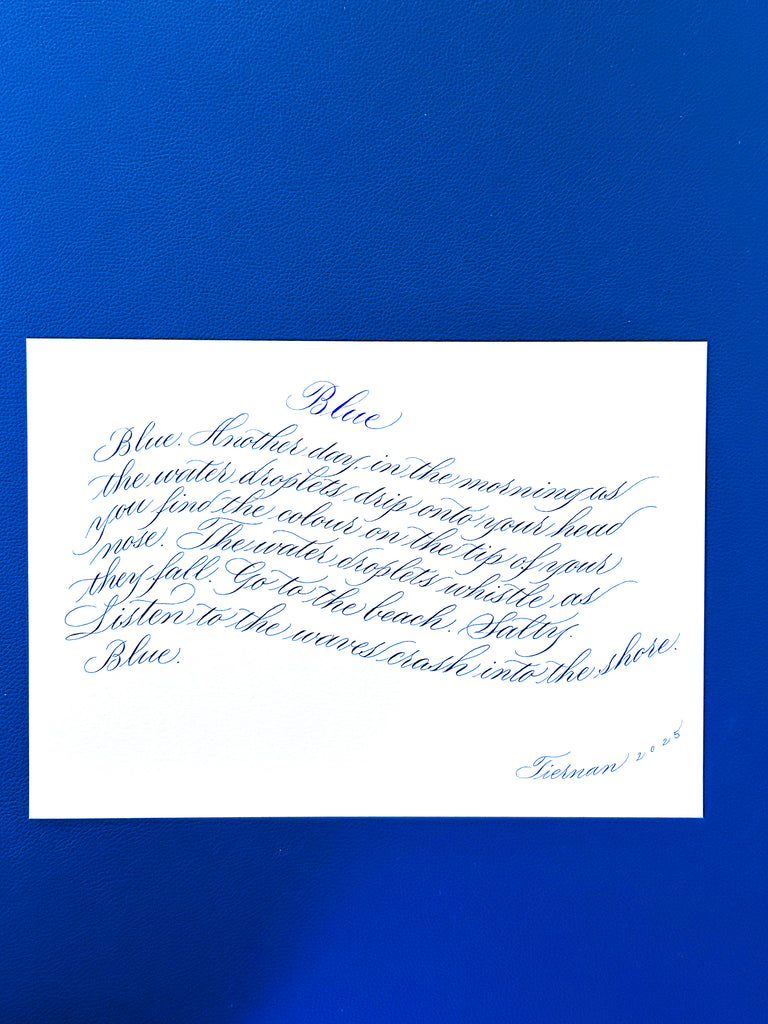 Blue
Blue. Another day, in the morning as
the water droplets drip onto your head
you find the colour on the tip of your
nose. The water droplets whistle as
they fall. Go to the beach. Salty.
Listen to the waves crash into the shore.
Blue.
Tiernan 2025